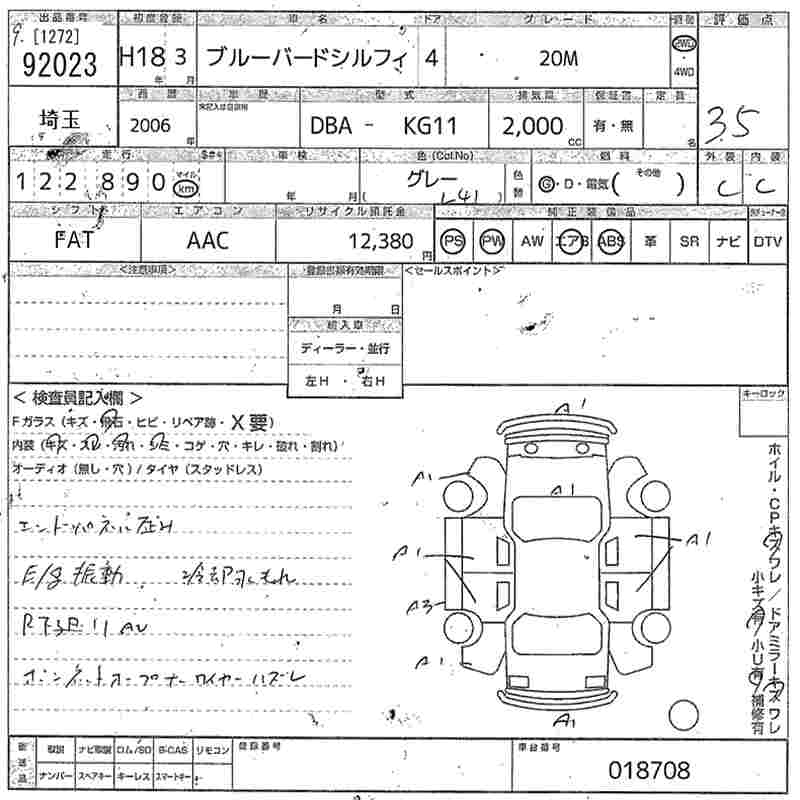 出品番号 初度登録 車名 ドア グレード 駆動 評価点
[1272]
92023 H18 3 ブルーバードシルフィ 4 20M 2WD 4WD
年 月
西暦 車歴 型式 排気量 保証書 定員
埼玉 2006 年 DBA - KG11 2,000 cc 有・無 名 3.5
走行 車検 色(Col.No) 燃料 外装 内装
122890 マイル km 年 月 グレー (L41) 色替 G・D・電気( その他 ) C C
シフト エアコン リサイクル預託金 純正装備品
FAT AAC 12,380 円 PS PW AW エアB ABS 革 SR ナビ DTV
<注意事項> 登録書類有効期限 <セールスポイント>
月 日
輸入車
ディーラー・並行
左H・右H
キーロック
<検査員記入欄>
Fガラス(キズ・飛石・ヒビ・リペア跡・X要)
内装(キズ・スレ・汚れ・シミ・コゲ・穴・キレ・破れ・割れ)
オーディオ(無し・穴)/タイヤ(スタッドレス)
エンドパネル歪み
E/g振動 冷却水もれ
ボンネットオープナーワイヤーハズレ
A1
A1
A1
A1 A1
A3
A1
A1
ホイル・CPキズワレ/ドアミラーキズワレ
小キズ有/小U有/補修有
取説 ナビ取説 ロム/SD B-CAS リモコン 登録番号 車台番号
ナンバー スペアキー キーレス スマートキー
018708